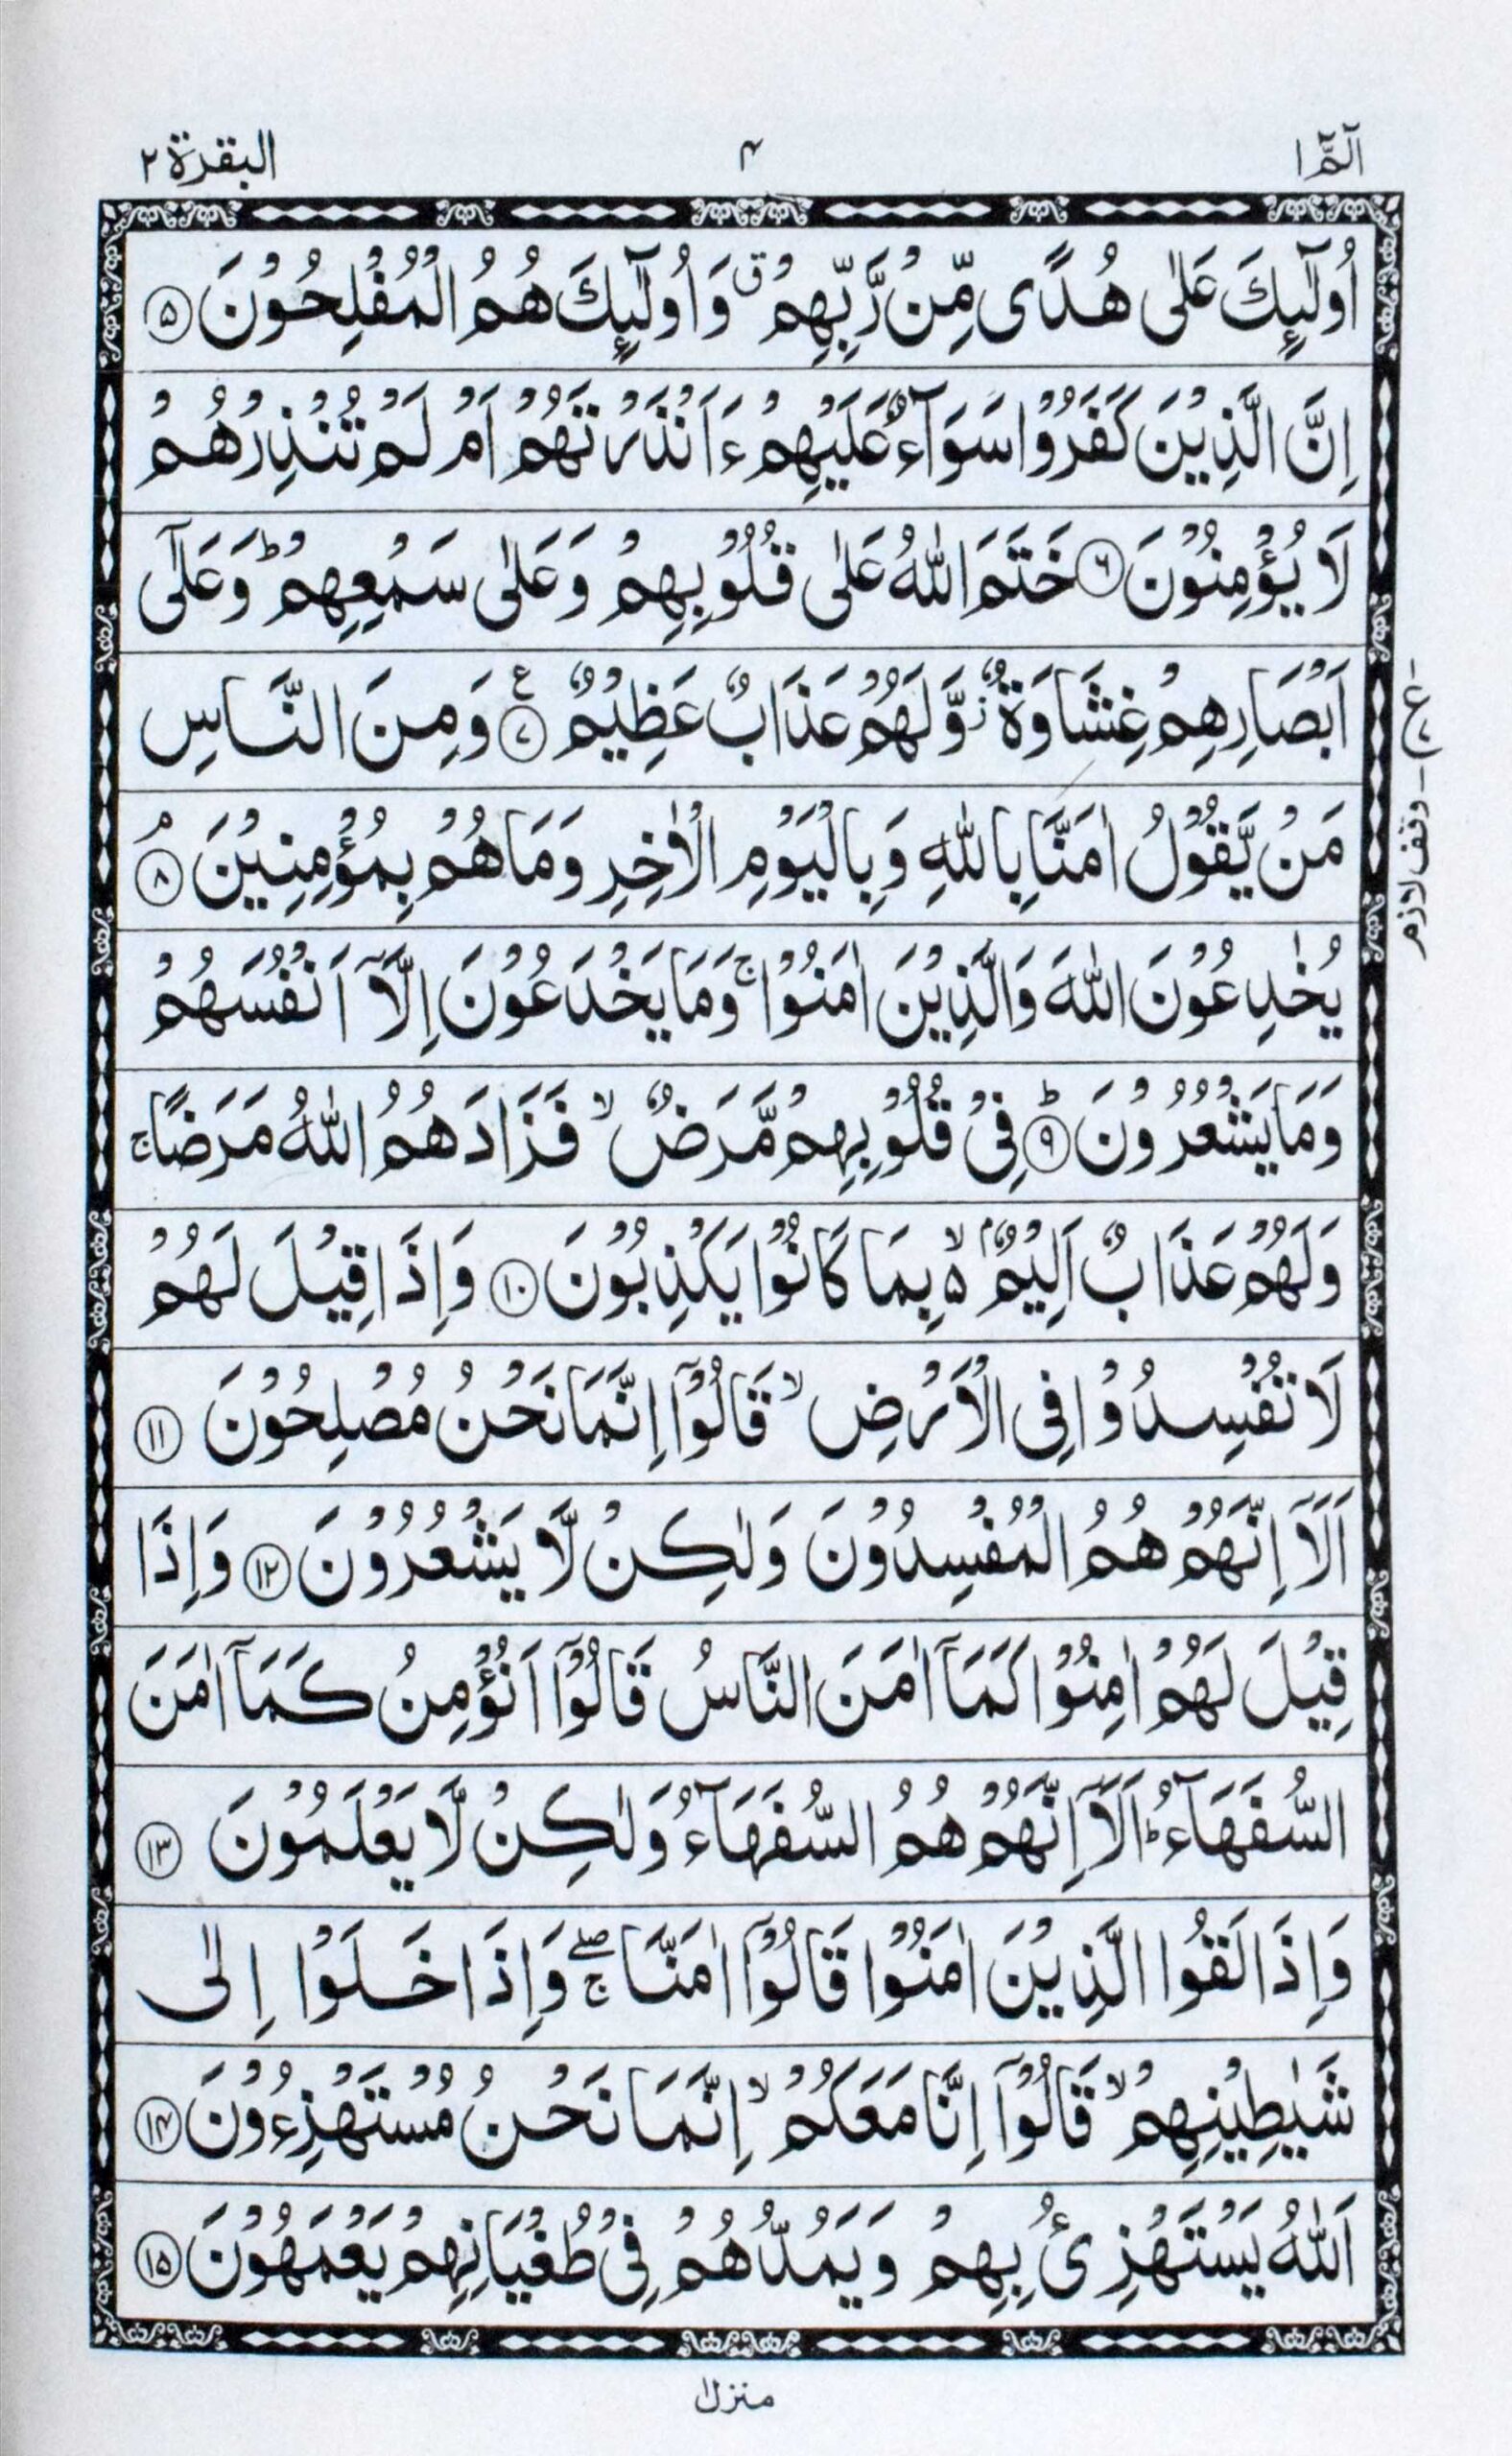 الٓمّٓ ۱
۴
البقرة ۲
اُولٰٓئِكَ عَلٰى هُدًى مِّنْ رَّبِّهِمْ ۗ وَاُولٰٓئِكَ هُمُ الْمُفْلِحُوْنَ ۵
اِنَّ الَّذِيْنَ كَفَرُوْا سَوَآءٌ عَلَيْهِمْ ءَاَنْذَرْتَهُمْ اَمْ لَمْ تُنْذِرْهُمْ
لَا يُؤْمِنُوْنَ ۶ خَتَمَ اللّٰهُ عَلٰى قُلُوْبِهِمْ وَعَلٰى سَمْعِهِمْ ؕ وَعَلٰٓى
اَبْصَارِهِمْ غِشَاوَةٌ ز وَّلَهُمْ عَذَابٌ عَظِيْمٌ ۷ ع وَمِنَ النَّاسِ
مَنْ يَّقُوْلُ اٰمَنَّا بِاللّٰهِ وَبِالْيَوْمِ الْاٰخِرِ وَمَا هُمْ بِمُؤْمِنِيْنَ ۸ۘ
يُخٰدِعُوْنَ اللّٰهَ وَالَّذِيْنَ اٰمَنُوْا ۚ وَمَا يَخْدَعُوْنَ اِلَّآ اَنْفُسَهُمْ
وَمَا يَشْعُرُوْنَ ۹ؕ فِيْ قُلُوْبِهِمْ مَّرَضٌ ۙ فَزَادَهُمُ اللّٰهُ مَرَضًا ۚ
وَلَهُمْ عَذَابٌ اَلِيْمٌۢ ۵ۙ بِمَا كَانُوْا يَكْذِبُوْنَ ۱۰ وَاِذَا قِيْلَ لَهُمْ
لَا تُفْسِدُوْا فِى الْاَرْضِ ۙ قَالُوْٓا اِنَّمَا نَحْنُ مُصْلِحُوْنَ ۱۱
اَلَآ اِنَّهُمْ هُمُ الْمُفْسِدُوْنَ وَلٰكِنْ لَّا يَشْعُرُوْنَ ۱۲ وَاِذَا
قِيْلَ لَهُمْ اٰمِنُوْا كَمَآ اٰمَنَ النَّاسُ قَالُوْٓا اَنُؤْمِنُ كَمَآ اٰمَنَ
السُّفَهَآءُ ؕ اَلَآ اِنَّهُمْ هُمُ السُّفَهَآءُ وَلٰكِنْ لَّا يَعْلَمُوْنَ ۱۳
وَاِذَا لَقُوا الَّذِيْنَ اٰمَنُوْا قَالُوْٓا اٰمَنَّا ۖۚ وَاِذَا خَلَوْا اِلٰى
شَيٰطِيْنِهِمْ ۙ قَالُوْٓا اِنَّا مَعَكُمْ ۙ اِنَّمَا نَحْنُ مُسْتَهْزِءُوْنَ ۱۴
اَللّٰهُ يَسْتَهْزِئُ بِهِمْ وَيَمُدُّهُمْ فِيْ طُغْيَانِهِمْ يَعْمَهُوْنَ ۱۵
ع
وقف لازم
منزل ۱